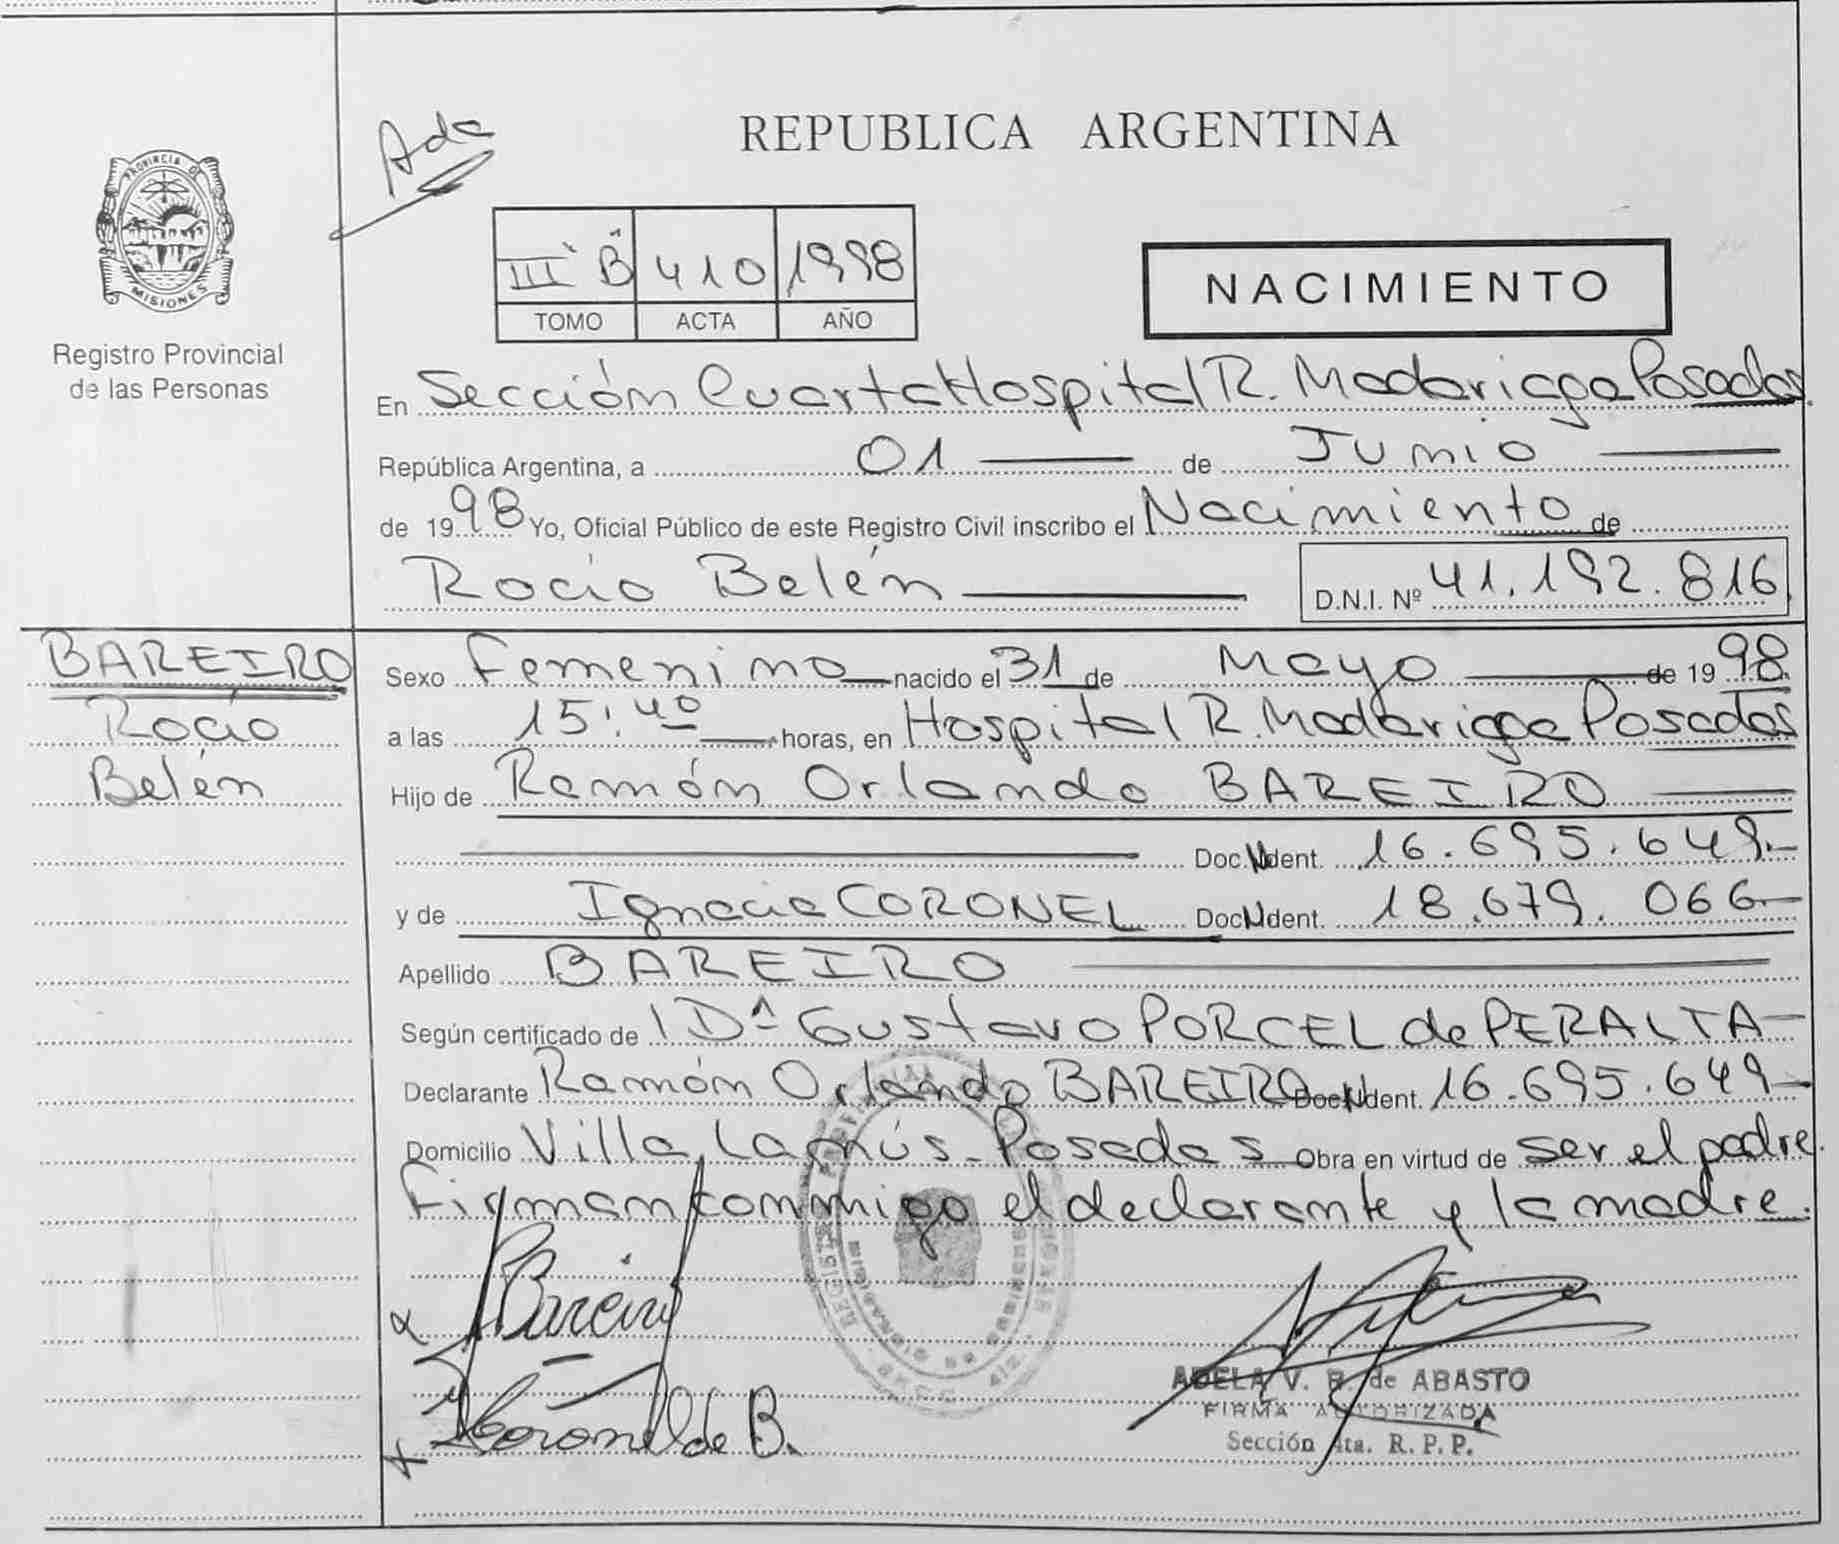 Ada
REPUBLICA ARGENTINA
PROVINCIA DE
MISIONES
Registro Provincial
de las Personas
III "B" 410 1998
TOMO ACTA AÑO
NACIMIENTO
En Sección Cuarta Hospital R. Madariaga Posadas
República Argentina, a 01 de Junio
de 1998 Yo, Oficial Público de este Registro Civil inscribo el Nacimiento de
Rocío Belén
D.N.I. Nº 41.192.816
BAREIRO
Rocío
Belén
Sexo Femenino nacido el 31 de Mayo de 1998
a las 15:40 horas, en Hospital R. Madariaga Posadas
Hijo de Ramón Orlando BAREIRO
Doc. Ident. 16.695.649.-
y de Ignacia CORONEL Doc. Ident. 18.679.066-
Apellido BAREIRO
Según certificado de Dr Gustavo PORCEL de PERALTA-
Declarante Ramón Orlando BAREIRO Doc. Ident. 16.695.649-
Domicilio Villa Lanús - Posadas Obra en virtud de ser el padre.
Firman conmigo el declarante y la madre.
Bareiro
Coronel de B.
ADELA V. B. de ABASTO
FIRMA AUTORIZADA
Sección 4ta. R. P. P.